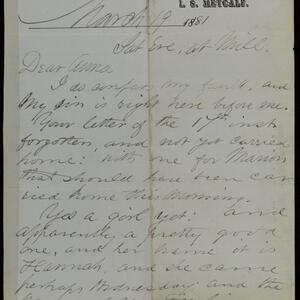 L. S. METCALF.
March 19 1881
Sat Eve, at Mill.
Dear Anna
I do confess my fault, and
my sin is right here before me.
Your letter of the 17th inst
forgotten, and not yet carried
home: with one for Marion
that should have been car
ried home this morning.
Yes a girl yet: and
apparently a pretty good
one, and her name it is
Hannah, and she came
perhaps Wednesday: and the